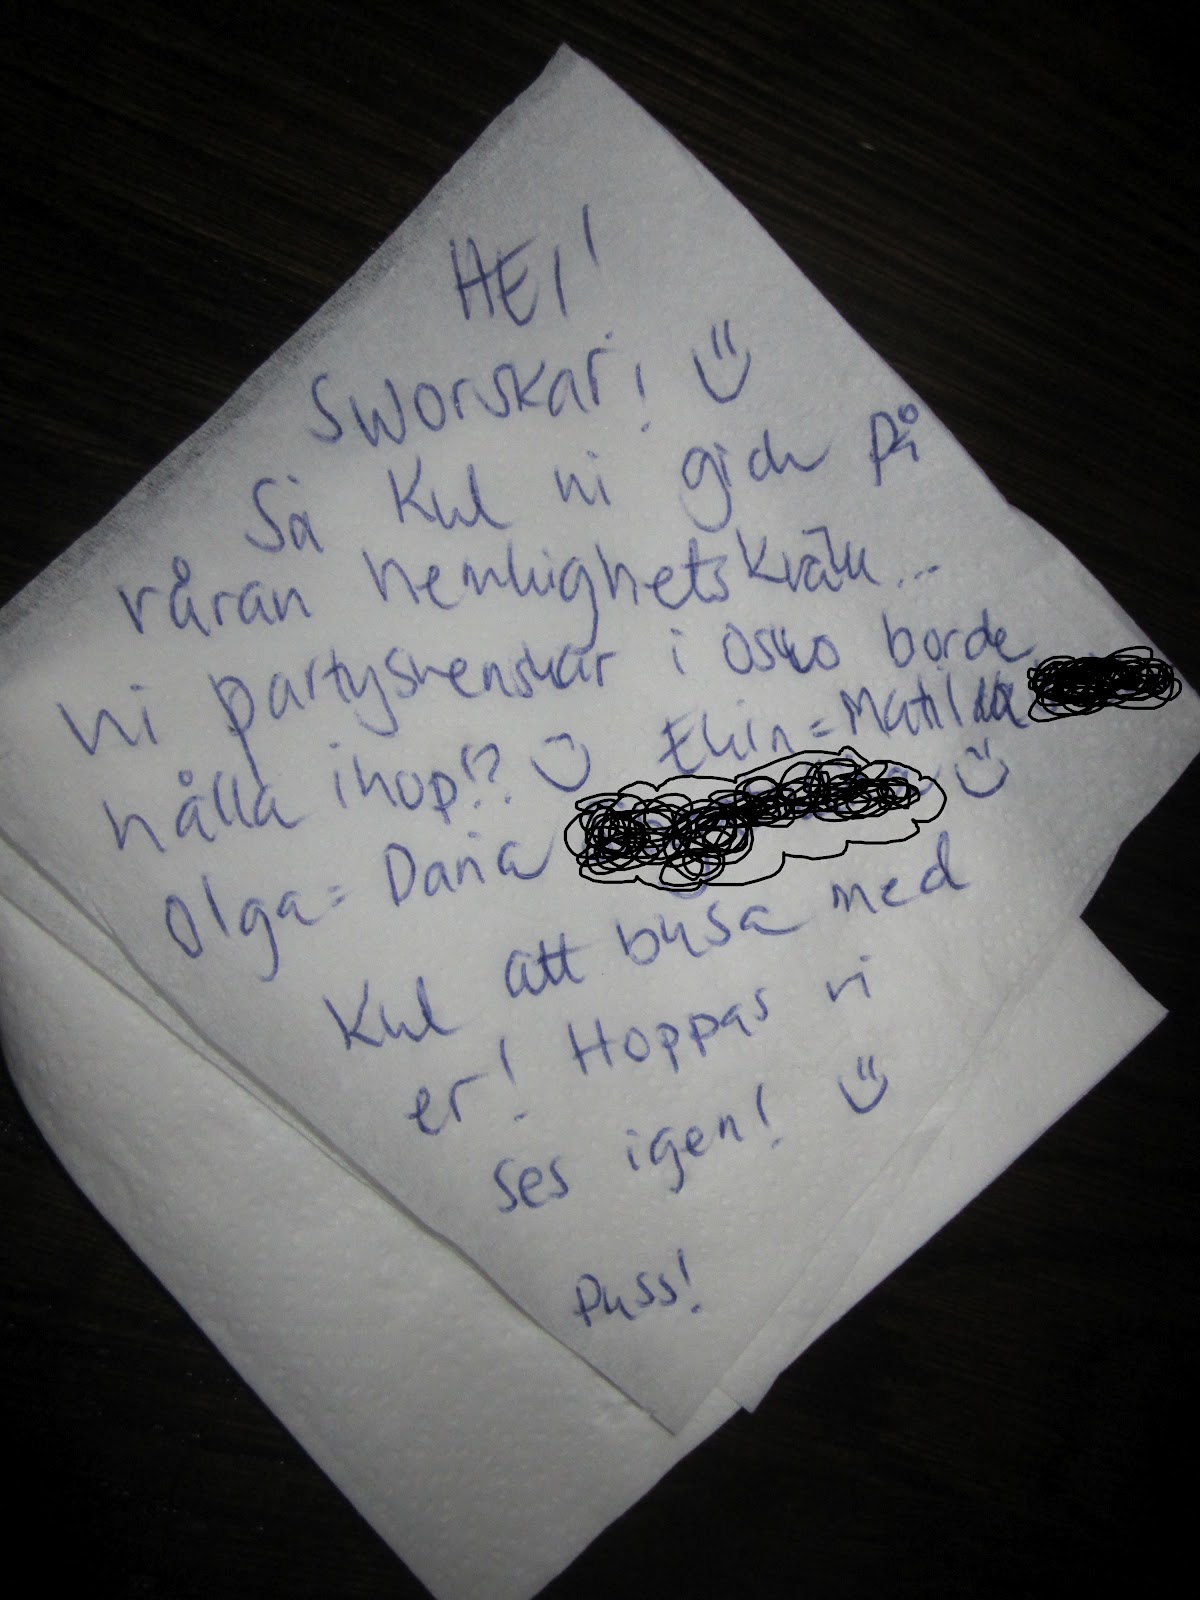 HEI!
Sworskar!
Så Kul ni gick på
våran hemlighetskväll...
ni partysvenskar i Oslo borde
hålla ihop!? Elin = Matilda
Olga = Daria
Kul att busa med
er! Hoppas vi
ses igen!
Puss!